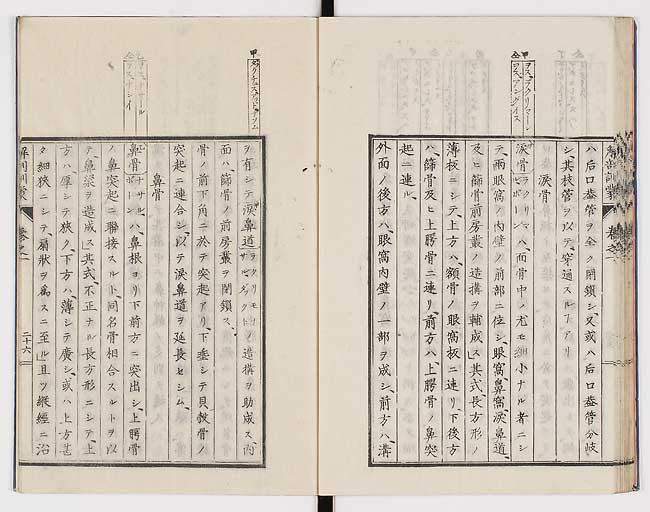 ハ后口岙管ヲ全ク閉鎖シ、又或ハ后口岙管分岐
シ、其枝管ヲ以テ、穿過スルヿアリ
涙骨
涙骨ハ、面骨中ノ尤モ細小ナル者ニシ
テ、兩眼窩ノ内壁ノ前部ニ位シ、眼窩、鼻窩、涙鼻道、
及ヒ篩骨前房叢ノ造構ヲ輔成ス、其式長方形ノ
薄板ニシテ、上方ハ、額骨ノ眼窩板ニ連リ、下後方
ハ、篩骨及ヒ上腭骨ニ連リ、前方ハ、上腭骨ノ鼻突
起ニ連ル、
外面ノ後方ハ、眼窩内壁ノ一部ヲ成シ、前方ハ、溝
ヲ有シテ涙鼻道ノ造構ヲ助成ス、内
面ハ篩骨ノ前房叢ヲ閉鎖ス、
骨ノ前下角ニ於テ突起アリ、下垂シテ貝殼骨ノ
突起ニ連合シ、以テ涙鼻道ヲ延長セシム、
鼻骨
鼻骨ハ、鼻根ヨリ下前方ニ突出シ、上腭骨
ノ鼻突起ニ聯接スルト、同名骨相合スルトヲ以
テ鼻梁ヲ造成ス、其式、不正ナル長方形ニシテ、上
方ハ、厚シテ狹ク、下方ハ、薄シテ廣シ、或ハ上方甚
タ細狹ニシテ、扇狀ヲ爲スニ至ル、且ツ縱經ニ沿
二十六